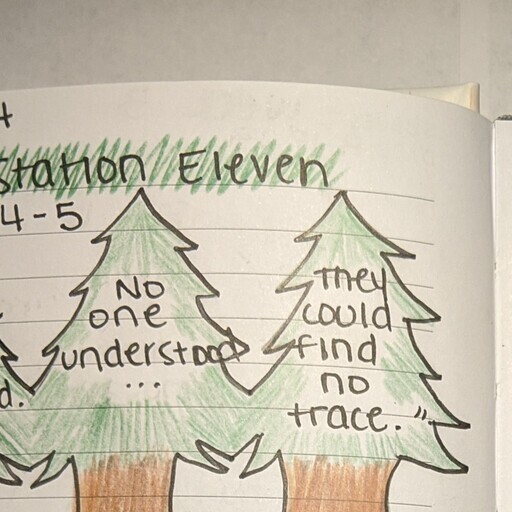 Station Eleven
4-5
No
one
understood
...
They
could
find
no
trace."
d.